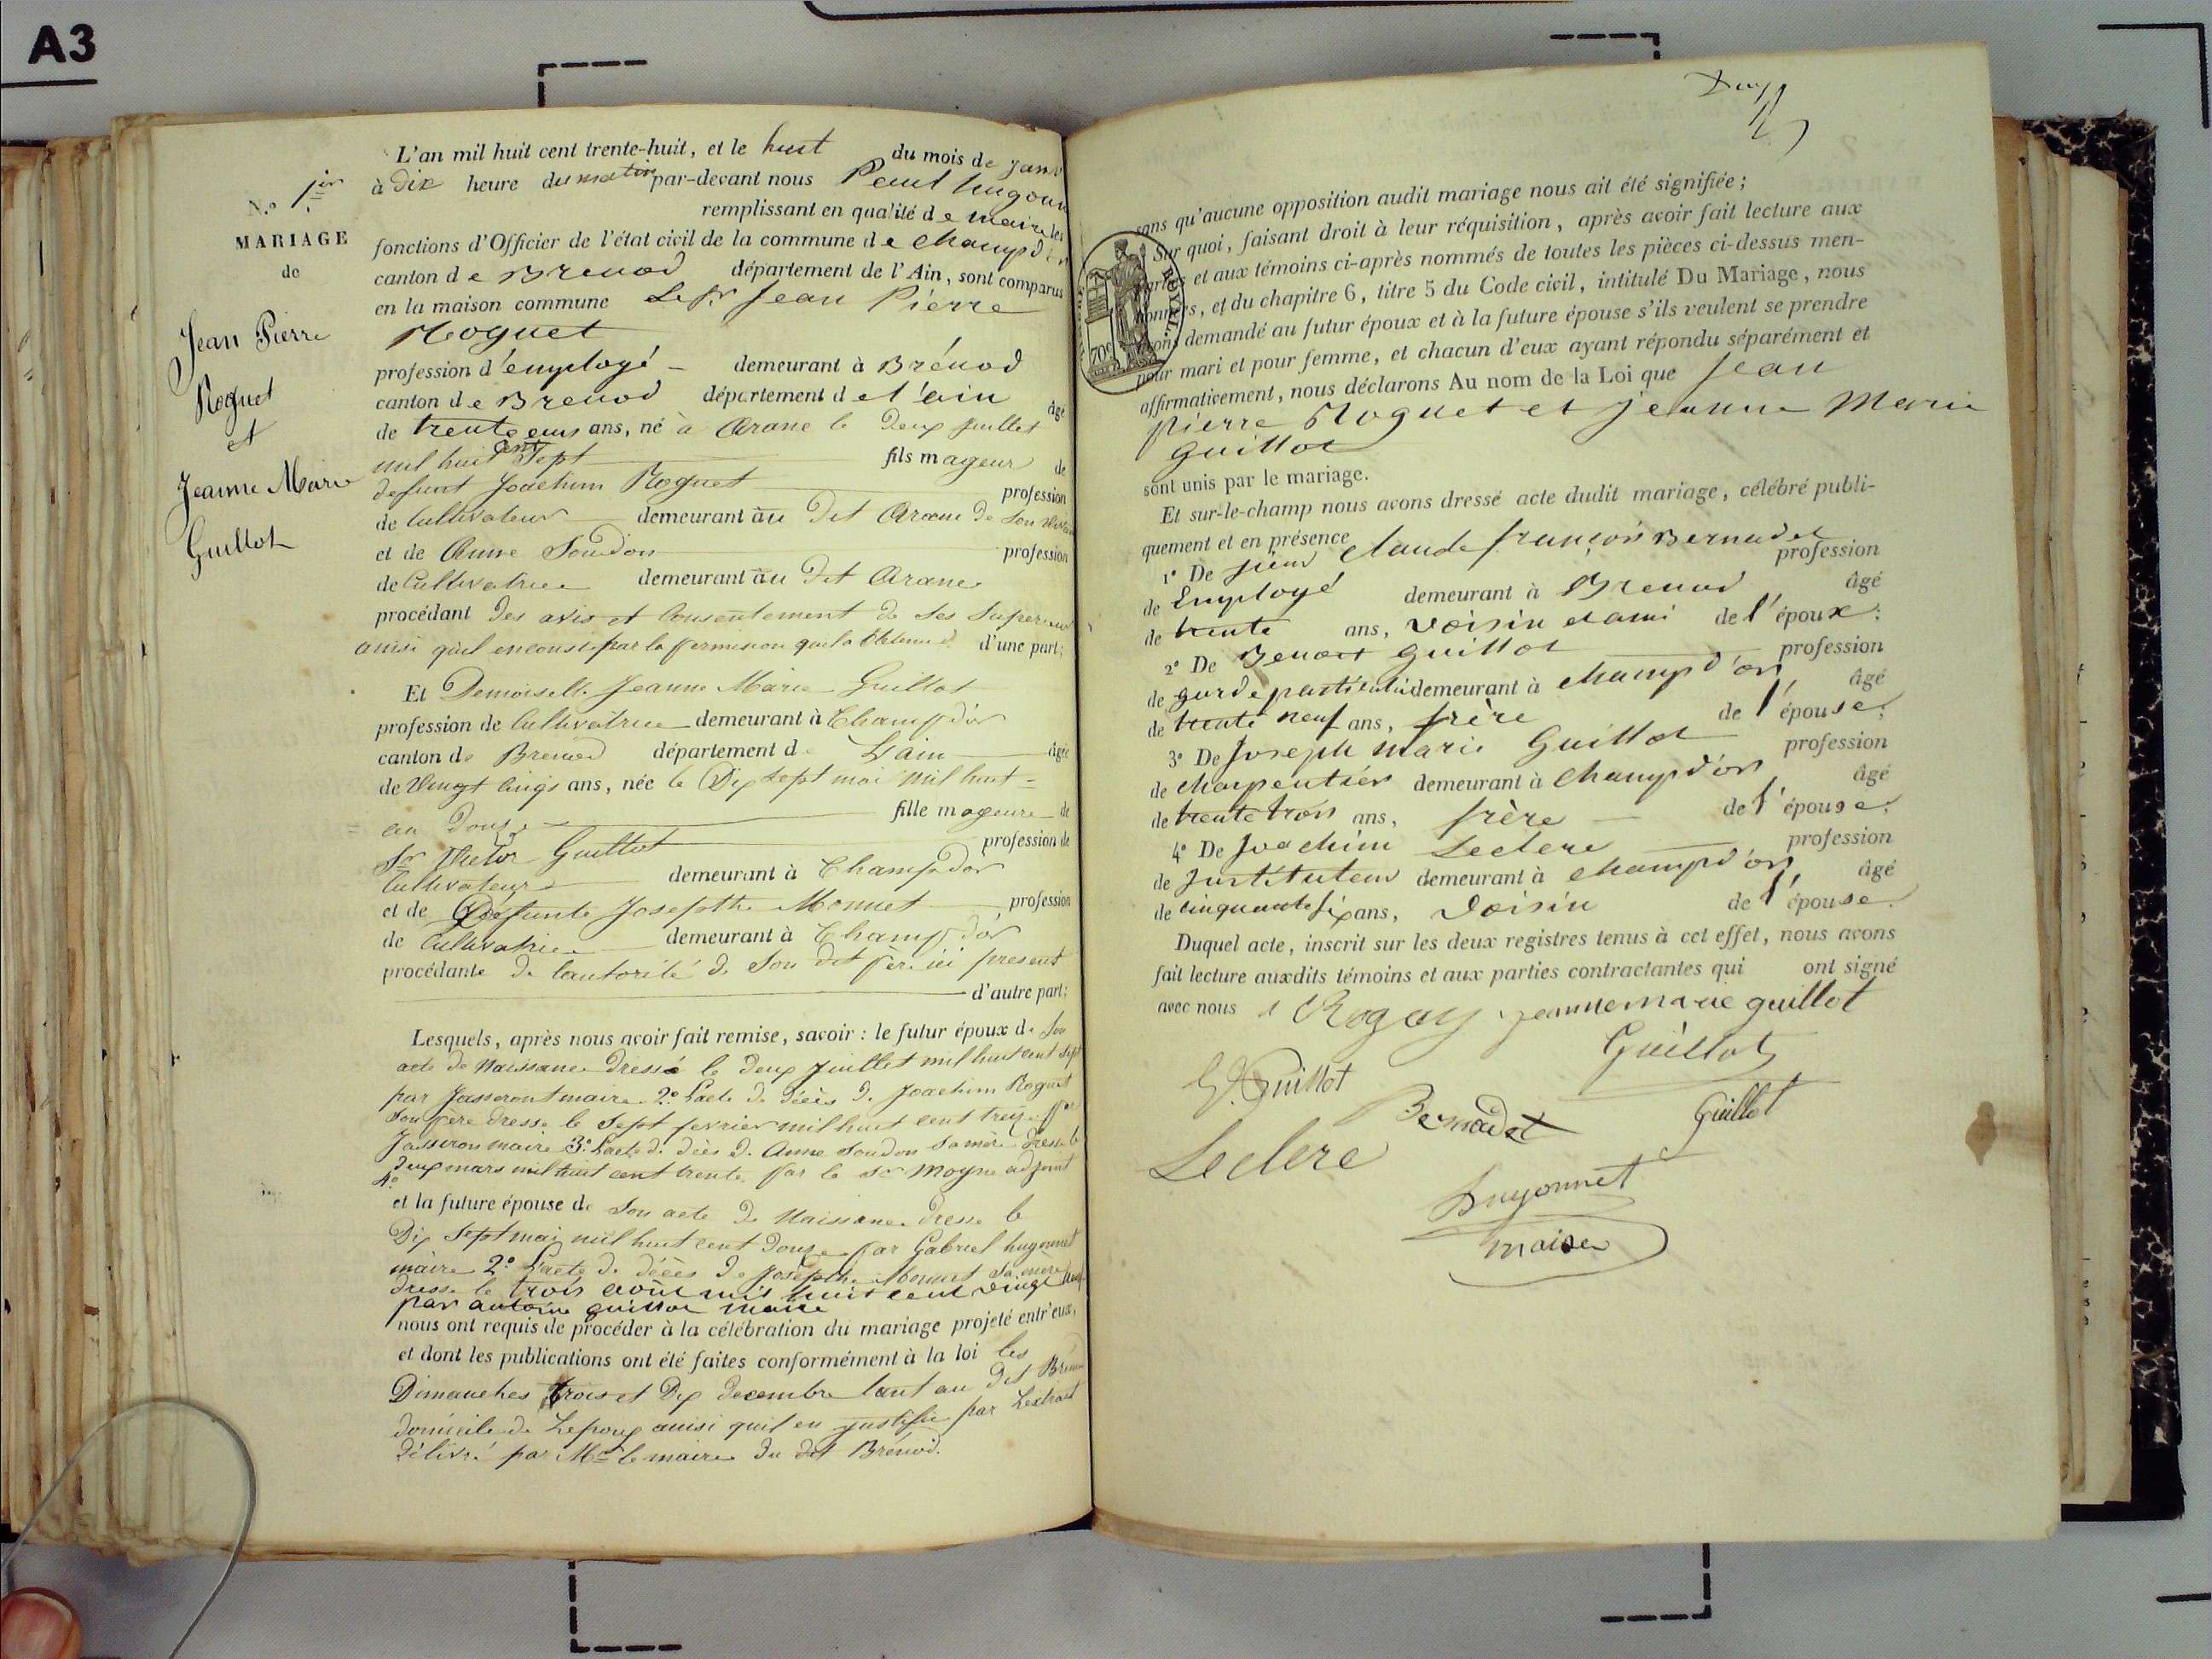 A3
L'an mil huit cent trente-huit, et le huit du mois de janv
à dix heure du matin par-devant nous Paul hugonn
remplissant en qualité de maire les
fonctions d'Officier de l'état civil de la commune de Champd'or
canton de Brenod département de l'Ain, sont comparus
en la maison commune Le Sr Jean Pierre
Roguet
profession d'employé demeurant à Brénod
canton de Brenod département de l'ain âgé
de trente ans, né à Arane le deux juillet
mil huit cent Sept fils mageur de
defunt Joachim Roguet profession
de Cultivateur demeurant au dit Arane de son vivan
et de Anne Soudon profession
de Cultivatrice demeurant au dit Arane
procédant des avis et Consentement de ses Superieur
ainsi qu'il en conste par la permission qu'il a Obtenue d'une part;
Et Demoiselle Jeanne Marie Guillot
profession de Cultivatrice demeurant à Champd'or
canton de Brenod département de L'ain âgée
de Vingt Cinq ans, née le Dix sept mai mil huit =
= cen Douze fille mageure de
Sr Victor Guillot profession de
Cultivateur demeurant à Champdor
et de Défunte Josephte Monnet profession
de Cultivatrice demeurant à Champd'or
procédante de l'autorité de Son dit père ici présent
d'autre part;
Lesquels, après nous avoir fait remise, savoir: le futur époux de Son
acte de Naissance dressé le deux juillet mil huit cent sept
par Jasseront maire 2.° L'acte de décès de Joachim Roguet
Son père dresse le Sept fevrier mil huit cent treize par
Jasseron maire 3.° L'acte de décès d. Anne Soudon sa mère dressé le
deux mars mil huit cent trente par le Sr Moyne adjoint
4°
et la future épouse de Son acte de Naissance dresse le
Dix Sept mai mil huit cent Douze par Gabriel hugonnet
maire 2.° L'acte de décès de Josephte Monnet sa mère
dresse le trois août mil huit cent vingt neuf
par antoine guillot maire
nous ont requis de procéder à la célébration du mariage projeté entr'eux,
et dont les publications ont été faites conformément à la loi les
Dimanches trois et Dix decembre tant au dit Brénod
domicile de Lepoux ainsi quil en justifie par Lextrait
délivré par Mr le maire du dit Brénod.
N.° 1er
MARIAGE
de
Jean Pierre
Roguet
et
Jeanne Marie
Guillot
sans qu'aucune opposition audit mariage nous ait été signifiée;
Sur quoi, faisant droit à leur réquisition, après avoir fait lecture aux
parties et aux témoins ci-après nommés de toutes les pièces ci-dessus men-
tionnées, et du chapitre 6, titre 5 du Code civil, intitulé Du Mariage, nous
avons demandé au futur époux et à la future épouse s'ils veulent se prendre
pour mari et pour femme, et chacun d'eux ayant répondu séparément et
affirmativement, nous déclarons Au nom de la Loi que Jean
pierre Roguet et jeanne Marie
guillot
sont unis par le mariage.
ROYAL
70c
Et sur-le-champ nous avons dressé acte dudit mariage, célébré publi-
quement et en présence
1° De sieur Claude françois Bernadet profession
de Employé demeurant à Brenod âgé
de trente ans, voisin et ami de l'époux;
2° De Benoit guillot profession
de garde particulier demeurant à champd'or, âgé
de trente neuf ans, frère de l'épouse;
3° De Joseph marie Guillot profession
de charpentier demeurant à champd'or, âgé
de trente trois ans, frère de l'épouse;
4° De Joachim Leclere profession
de Jnstituteur demeurant à champd'or, âgé
de cinquante six ans, voisin de l'épouse.
Duquel acte, inscrit sur les deux registres tenus à cet effet, nous avons
fait lecture auxdits témoins et aux parties contractantes qui ont signé
avec nous jeannemarie guillot
Guillot
Guillot
Bernadet Guillot
Leclere
hugonnet
maire